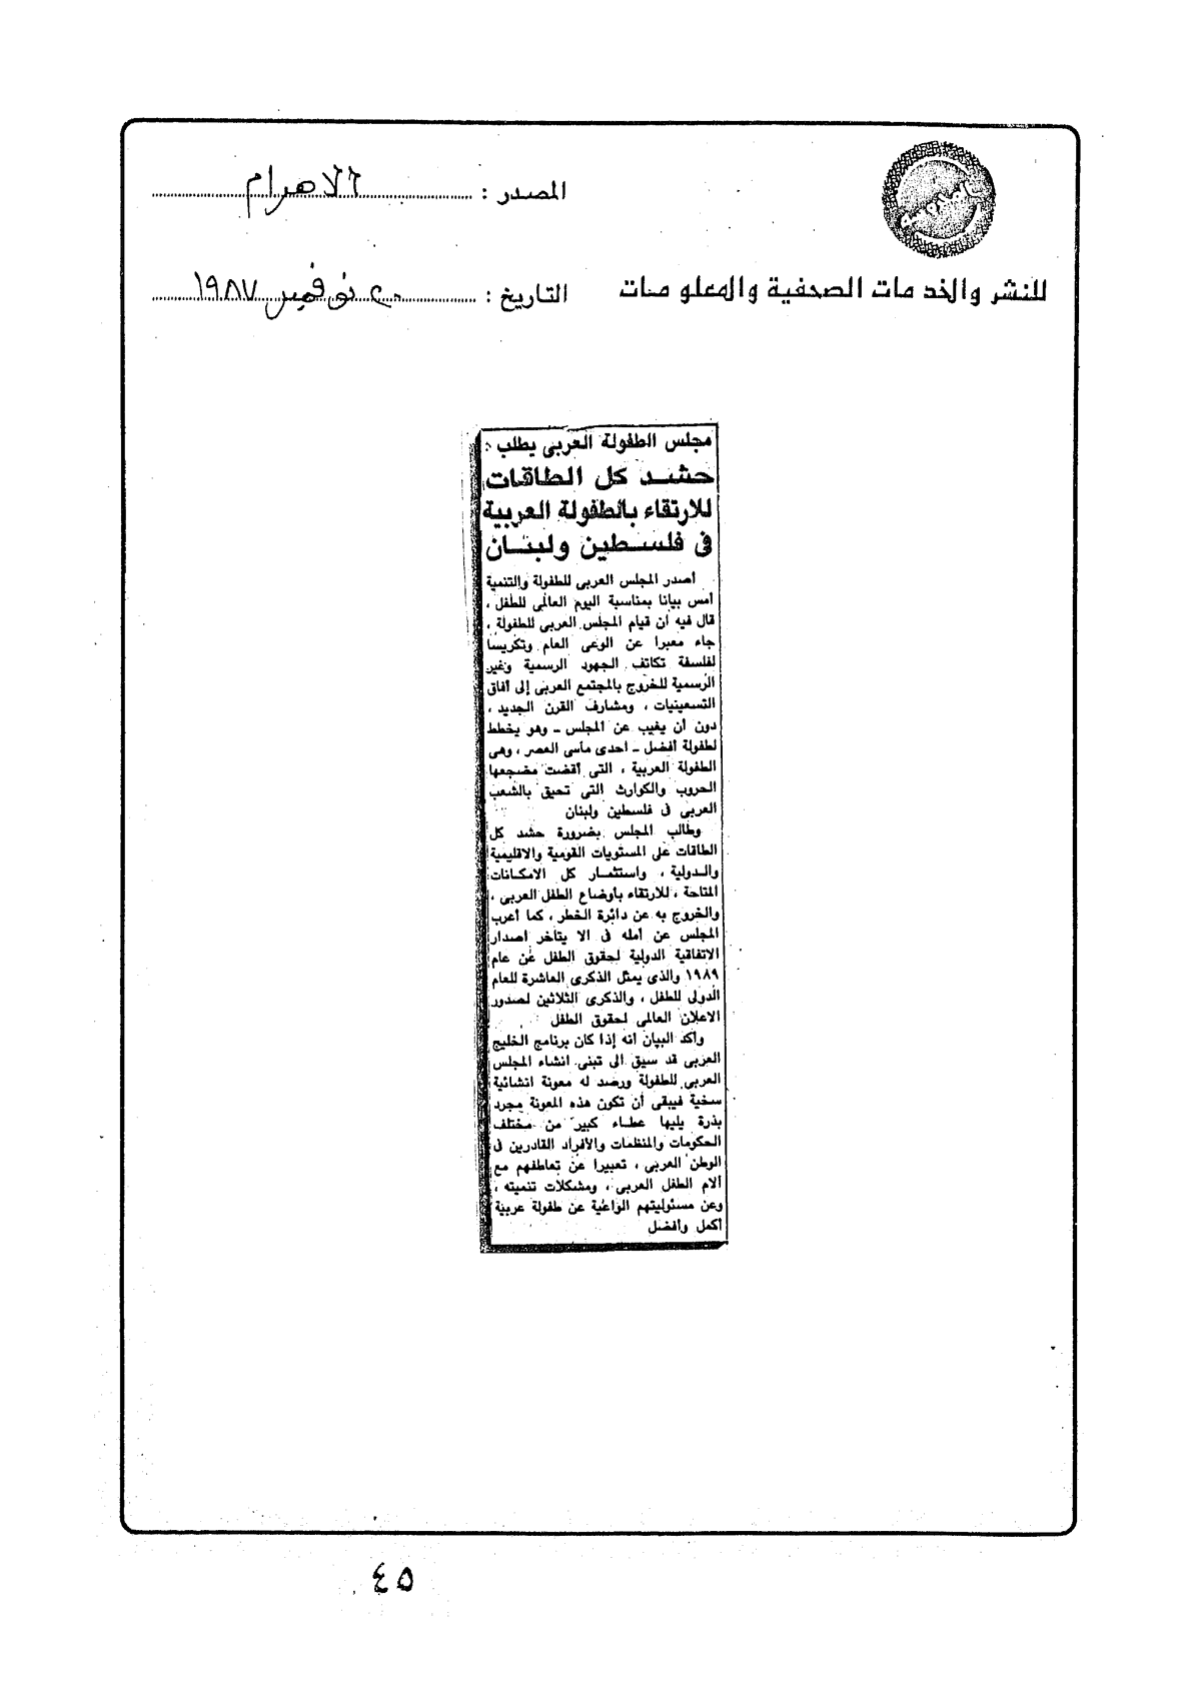 المصدر : الاهرام
للنشر والخدمات الصحفية والمعلومات
التاريخ : ٢٠ نوفمبر ١٩٨٧
مجلس الطفولة العربى يطلب :
حشد كل الطاقات
للارتقاء بالطفولة العربية
فى فلسطين ولبنان
أصدر المجلس العربى للطفولة والتنمية
أمس بيانا بمناسبة اليوم العالمى للطفل ،
قال فيه أن قيام المجلس العربى للطفولة ،
جاء معبرا عن الوعى العام وتكريسا
لفلسفة تكاتف الجهود الرسمية وغير
الرسمية للخروج بالمجتمع العربى إلى أفاق
التسعينيات ، ومشارف القرن الجديد ،
دون أن يغيب عن المجلس ـ وهو يخطط
لطفولة أفضل ـ احدى مأسى العصر ، وهى
الطفولة العربية ، التى أقضت مضجعها
الحروب والكوارث التى تحيق بالشعب
العربى فى فلسطين ولبنان
وطالب المجلس بضرورة حشد كل
الطاقات على المستويات القومية والاقليمية
والدولية ، واستثمار كل الامكانات
المتاحة ، للارتقاء بأوضاع الطفل العربى ،
والخروج به عن دائرة الخطر ، كما أعرب
المجلس عن أمله فى الا يتأخر اصدار
الاتفاقية الدولية لحقوق الطفل عن عام
١٩٨٩ والذى يمثل الذكرى العاشرة للعام
الدولى للطفل ، والذكرى الثلاثين لصدور
الاعلان العالمى لحقوق الطفل
وأكد البيان انه إذا كان برنامج الخليج
العربى قد سبق الى تبنى انشاء المجلس
العربى للطفولة ورصد له معونة انشائية
سخية فيبقى أن تكون هذه المعونة مجرد
بذرة يليها عطاء كبير من مختلف
الحكومات والمنظمات والأفراد القادرين فى
الوطن العربى ، تعبيرا عن تعاطفهم مع
ألام الطفل العربى ، ومشكلات تنميته ،
وعن مسئوليتهم الواعية عن طفولة عربية
أكمل وأفضل
٤٥